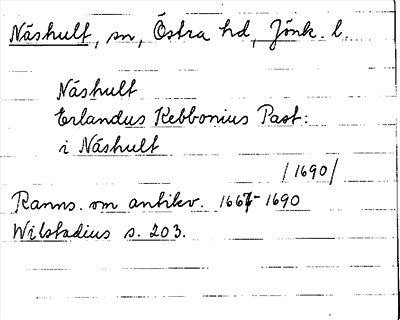 Näshult, sn, Östra hd, Jönk. l.
Näshult
Erlandus Kebbonius Past:
i Näshult
/1690/
Ranns. om antikv. 1667-1690
Wilstadius s. 203.